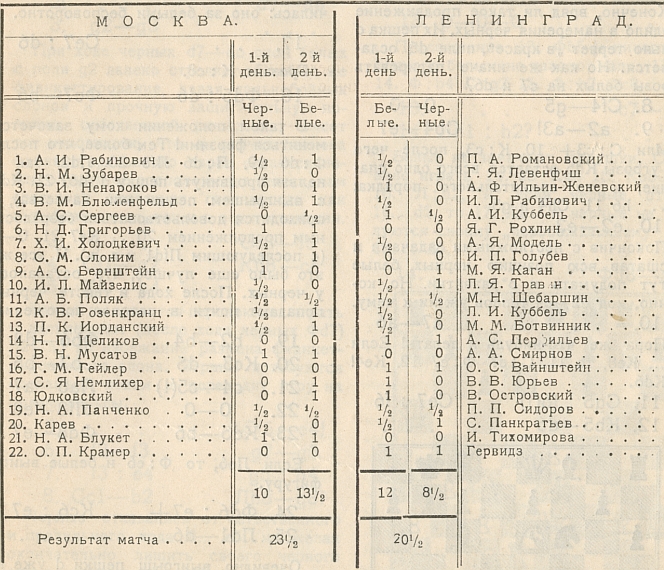 МОСКВА. ЛЕНИНГРАД.
1-й день. 2 й день. 1-й день. 2-й день.
Черные. Белые. Белые. Черные.
1. А. И. Рабинович . . . . ½ 1 ½ 0 П. А. Романовский . . . .
2. Н. М. Зубарев . . . . . ½ 0 ½ 1 Г. Я. Левенфиш . . . . .
3. В. И. Ненароков . . . . 0 1 1 0 А. Ф. Ильин-Женевский
4. В. М. Блюменфельд . . ½ 1 ½ 0 И. Л. Рабинович . . . . .
5. А. С. Сергеев . . . . . 0 ½ 1 ½ А. И. Куббель . . . . .
6. Н. Д. Григорьев . . . . 1 1 0 0 Я. Г. Рохлин . . . . .
7. Х. И. Холодкевич . . . ½ 1 ½ 0 А. Я. Модель . . . . .
8. С. М. Слоним . . . . . 1 1 0 0 И. П. Голубев . . . . .
9. А. С. Бернштейн . . . . 1 0 0 1 М. Я. Каган . . . . .
10. И. Л. Майзелис . . . . ½ 0 ½ 1 Л. Я. Травин . . . . .
11. А. Б. Поляк . . . . . ½ ½ ½ ½ М. Н. Шебаршин . . . .
12 К. В. Розенкранц . . . ½ 1 ½ 0 Л. И. Куббель . . . . .
13. П. К. Иорданский . . . ½ 1 ½ 0 М. М. Ботвинник . . . .
14 Н. П. Целиков . . . . 0 0 1 1 А. С. Перфильев . . . .
15. В. Н. Мусатов . . . . . 1 1 0 0 А. А. Смирнов . . . . .
16. Г. М. Гейлер . . . . . 0 0 1 1 О. С. Вайнштейн . . . .
17. С. Я Немлихер . . . . 0 1 1 0 В. В. Юрьев . . . . .
18. Юдковский . . . . . 0 1 1 0 В. Островский . . . . .
19. Н. А. Панченко . . . . ½ ½ ½ ½ П. П. Сидоров . . . . .
20. Карев . . . . . ½ 0 ½ 1 С. Панкратьев . . . . .
21. Н. А. Блукет . . . . . 1 1 0 0 И. Тихомирова . . . . .
22. О. П. Крамер . . . . . 0 0 1 1 Гервидз . . . . .
10 13½ 12 8½
Результат матча . . . . . 23½ 20½